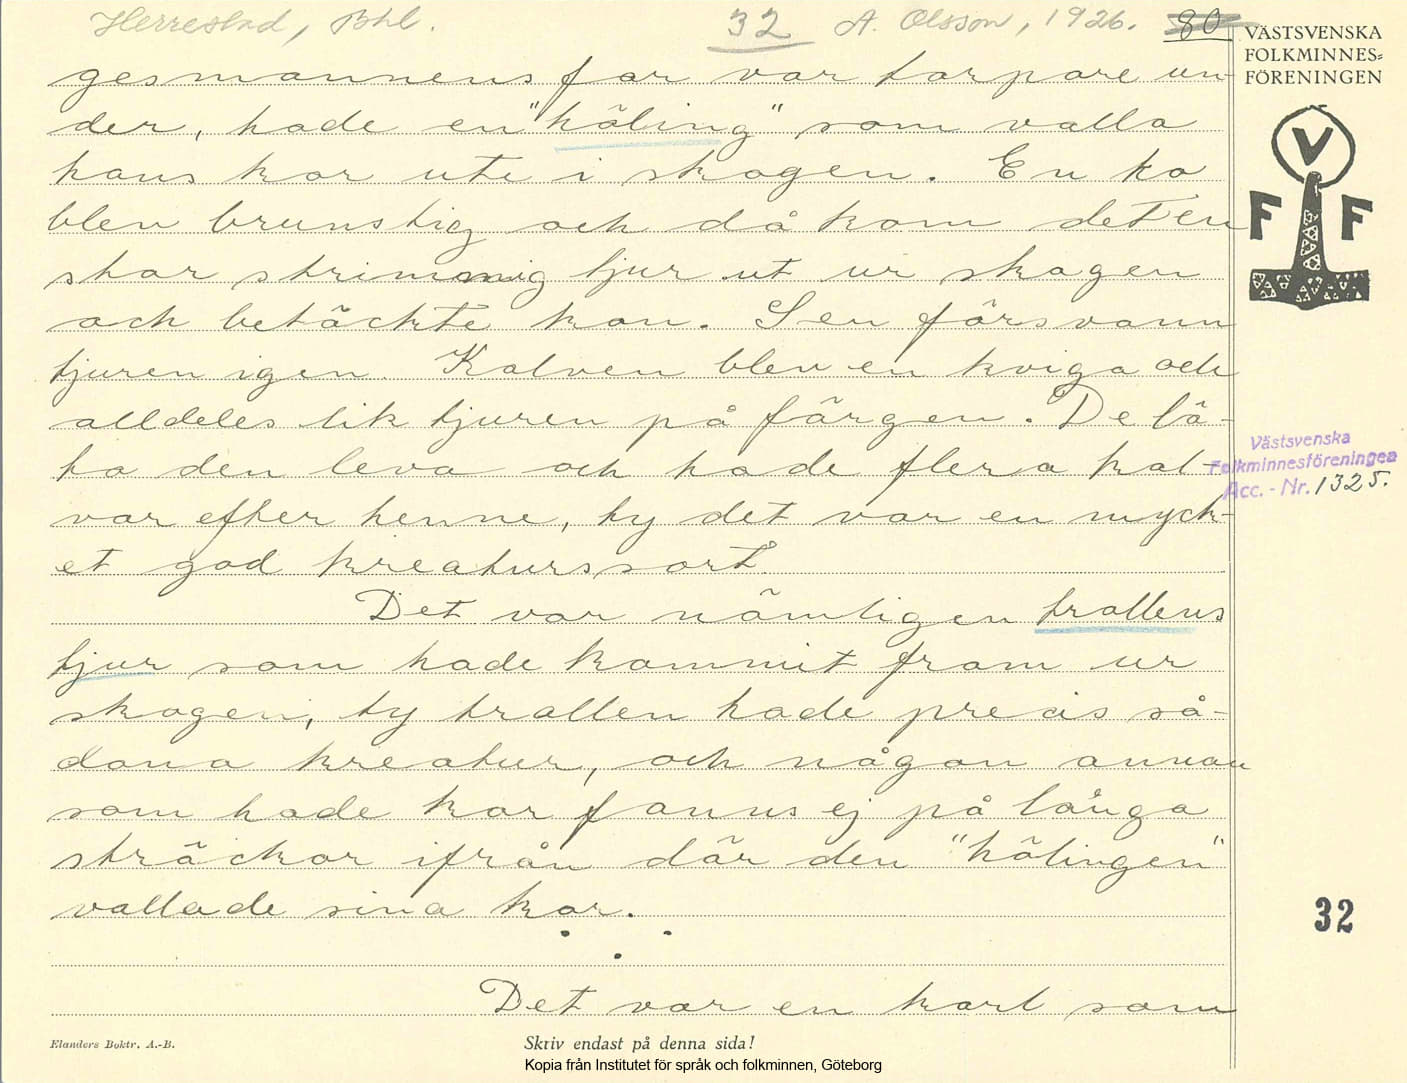 Herrestad, Bhl. 32 A. Olsson, 1926. 80
VÄSTSVENSKA
FOLKMINNES=
FÖRENINGEN
V
F F
gesmannens far var torpare un-
der, hade en "häling" som valla
hans kor ute i skogen. En ko
blev brunstig och då kom det en
stor strimmig tjur ut ur skogen
och betäckte kon. Sen försvann
tjuren igen. Kalven blev en kviga och
alldeles lik tjuren på färgen. De lä-
to den leva och hade flera kal-
var efter henne, ty det var en myck-
et god kreaturssort.
Det var nämligen trollens
tjur som hade kommit fram ur
skogen, ty trollen hade precis så-
dana kreatur, och någon annan
som hade kor fanns ej på långa
sträckor ifrån där den "hälingen"
vallade sina kor.
Det var en karl som
Västsvenska
Folkminnesföreningen
Acc. - Nr. 1325.
32
Elanders Boktr. A.-B.
Skriv endast på denna sida!
Kopia från Institutet för språk och folkminnen, Göteborg